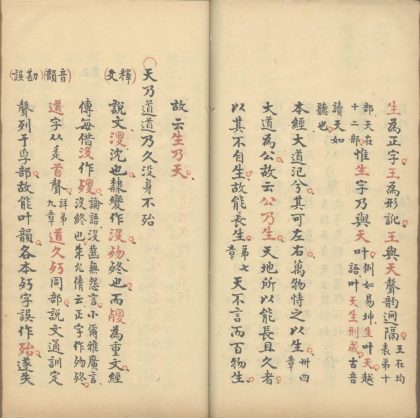 生為正字王為形訛王與天聲韵迥隔王在均
表弟十
部天在
十二部惟生字乃與天叶例如易坤生叶天越
語叶天生刑成古音
讀天如
聽也
本經大道氾兮其可左右萬物恃之以生卅四
章
大道為公故云公乃生天地所以能長且久者
以其不自生故能長生弟七
章天不言而百物生
故云生乃天
天乃道道乃久沒身不㱙
(釋文)
說文沈也隸變作沒歾終也而為重文經
傳每借沒作歾論語沒齒無怨言小爾雅廣言
沒終也朱允倩云正字作歾終
(音韻)
道字从辵首聲詳弟
九章道久㱙同部說文通訓定
(勘誤)
聲列于孚部故能叶韻各本㱙字誤作殆遂失